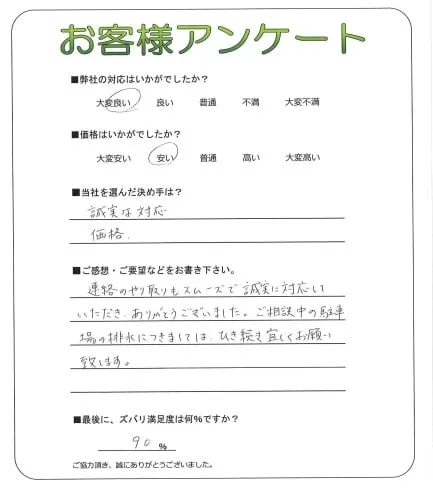 お客様アンケート
■弊社の対応はいかがでしたか?
大変良い 良い 普通 不満 大変不満
■価格はいかがでしたか?
大変安い 安い 普通 高い 大変高い
■当社を選んだ決め手は?
誠実な対応
価格.
■ご感想・ご要望などをお書き下さい。
連絡のやり取りもスムーズで誠実に対応し
いただき、ありがとうございました。ご相談中の駐車
場の排水につきましては、ひき続き宜しくお願い
致します。
■最後に、ズバリ満足度は何%ですか?
90 %
ご協力頂き、誠にありがとうございました。